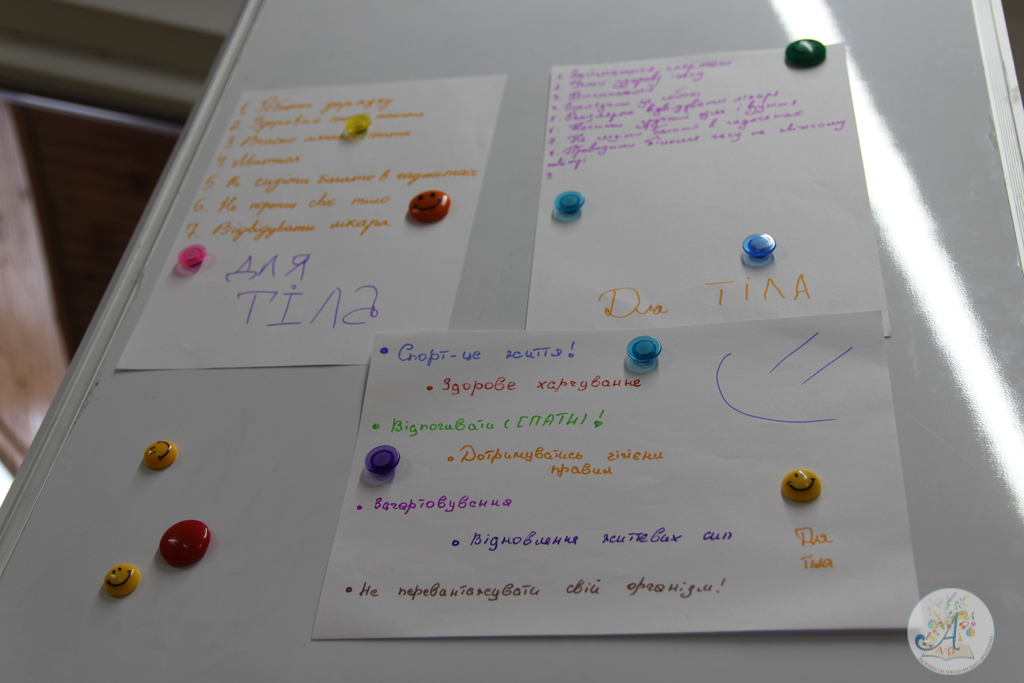 1. Робити зарядку
2. Здоровий
3
4 Митися
5. Не сидіти багато в гаджетах
6. Не
свіє тіло
7. Відвідувати лікаря
ДЛЯ
ТІЛА
1. Займатися спортом
2.
здорову їжу
3. Висипатися
4. Доглядати за собою
5
відвідувати лікаря
6. Носити
одяг і взуття
7. Не сидіти багато в гаджетах
8. Проводити більше часу на свіжому
повітрі
9
Для ТІЛА
• Спорт-це життя!
• Здорове харчування
• Відпочивати (СПАТИ)!
• Дотримуватись гігієни
правил
• Загартовування
• Відновлення життєвих сил
• Не перевантажувати свій організм!
Для
тіла